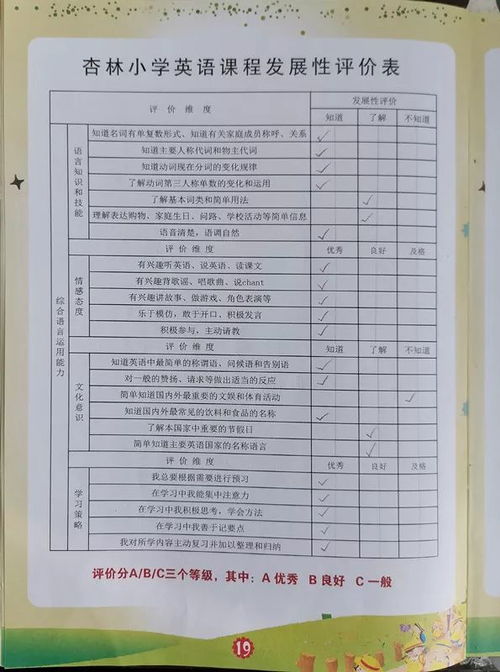 杏林小学英语课程发展性评价表
评价维度 发展性评价
知道 了解 不知道
综合语言运用能力
语言知识和技能
知道名词有单复数形式、知道有关家庭成员称呼、关系
知道主要人称代词和物主代词
知道动词现在分词的变化规律
了解动词第三人称单数的变化和运用
了解基本词类和简单用法
理解表达购物、家庭生日、问路、学校活动等简单信息
语音清楚,语调自然
评价维度 优秀 良好 及格
情感态度
有兴趣听英语、说英语、读课文
有兴趣背歌谣、唱歌曲、说chant
有兴趣讲故事、做游戏、角色表演等
乐于模仿,敢于开口、积极发言
积极参与、主动请教
评价维度 知道 了解 不知道
文化意识
知道英语中最简单的称谓语、问候语和告别语
对一般的赞扬、请求等做出适当的反应
简单知道国内外最重要的文娱和体育活动
知道国内外最常见的饮料和食品的名称
了解本国家中重要的节假日
简单知道主要英语国家的名称语言
评价维度 优秀 良好 及格
学习策略
我总要根据需要进行预习
在学习中我能集中注意力
在学习中我积极思考,学会方法
在学习中我善于记要点
我对所学内容主动复习并加以整理和归纳
评价分A/B/C三个等级,其中:A 优秀 B 良好 C 一般
19